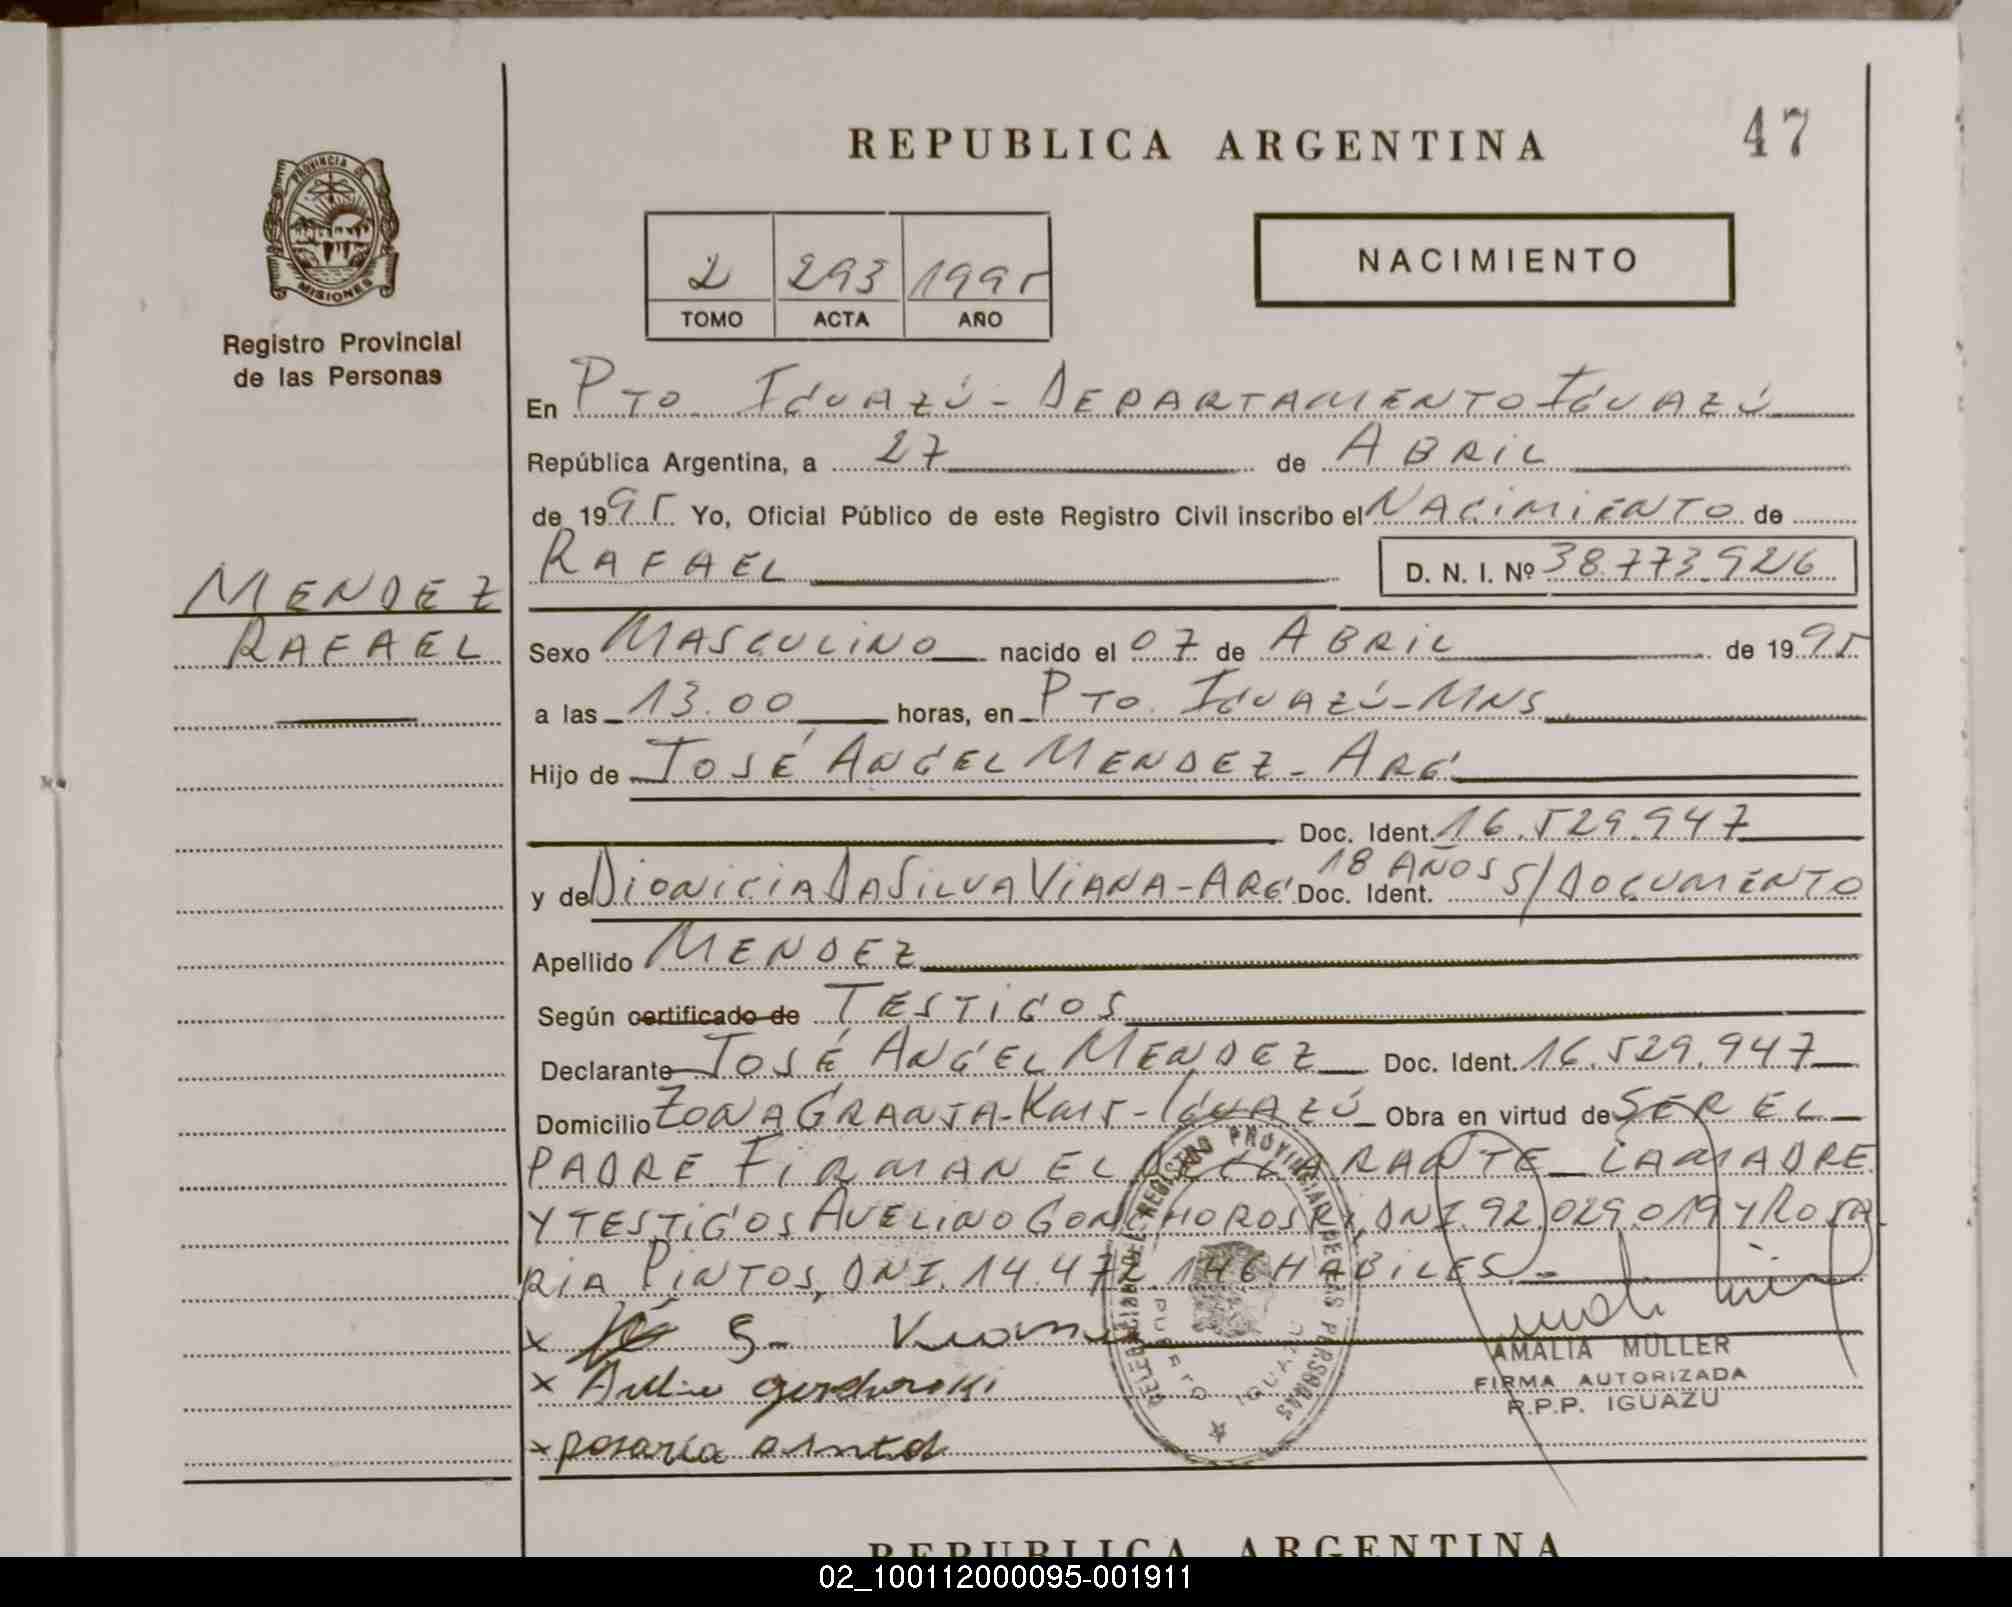 REPUBLICA ARGENTINA
47
PROVINCIA DE
MISIONES
Registro Provincial
de las Personas
2 293 1995
TOMO ACTA AÑO
NACIMIENTO
En PTO. IGUAZÚ - DEPARTAMENTO IGUAZÚ
República Argentina, a 27 de ABRIL
de 1995 Yo, Oficial Público de este Registro Civil inscribo el NACIMIENTO de
RAFAEL D. N. I. Nº 38.773.926
MENDEZ
RAFAEL
Sexo MASCULINO nacido el 07 de ABRIL de 1995
a las 13.00 horas, en PTO. IGUAZÚ-MNS
Hijo de JOSÉ ANGEL MENDEZ - ARG.
Doc. Ident. 16.529.947
y de DIONICIA DA SILVA VIANA - ARG. Doc. Ident. 18 AÑOS S/DOCUMENTO
Apellido MENDEZ
Según certificado de TESTIGOS
Declarante JOSÉ ANGEL MENDEZ Doc. Ident. 16.529.947
Domicilio ZONA GRANJA-Km 5-IGUAZÚ Obra en virtud de SER EL
PADRE FIRMAN EL DECLARANTE LA MADRE
Y TESTIGOS AVELINO DNI. 92.029.019 Y ROSA
RIA PINTOS, DNI. 14.472.146 HABILES
x
x
x rosaria
DELEGACION DEL REGISTRO PROVINCIAL DE LAS PERSONAS
PUERTO IGUAZU
AMALIA MULLER
FIRMA AUTORIZADA
R.P.P. IGUAZU
REPUBLICA ARGENTINA
02_100112000095-001911